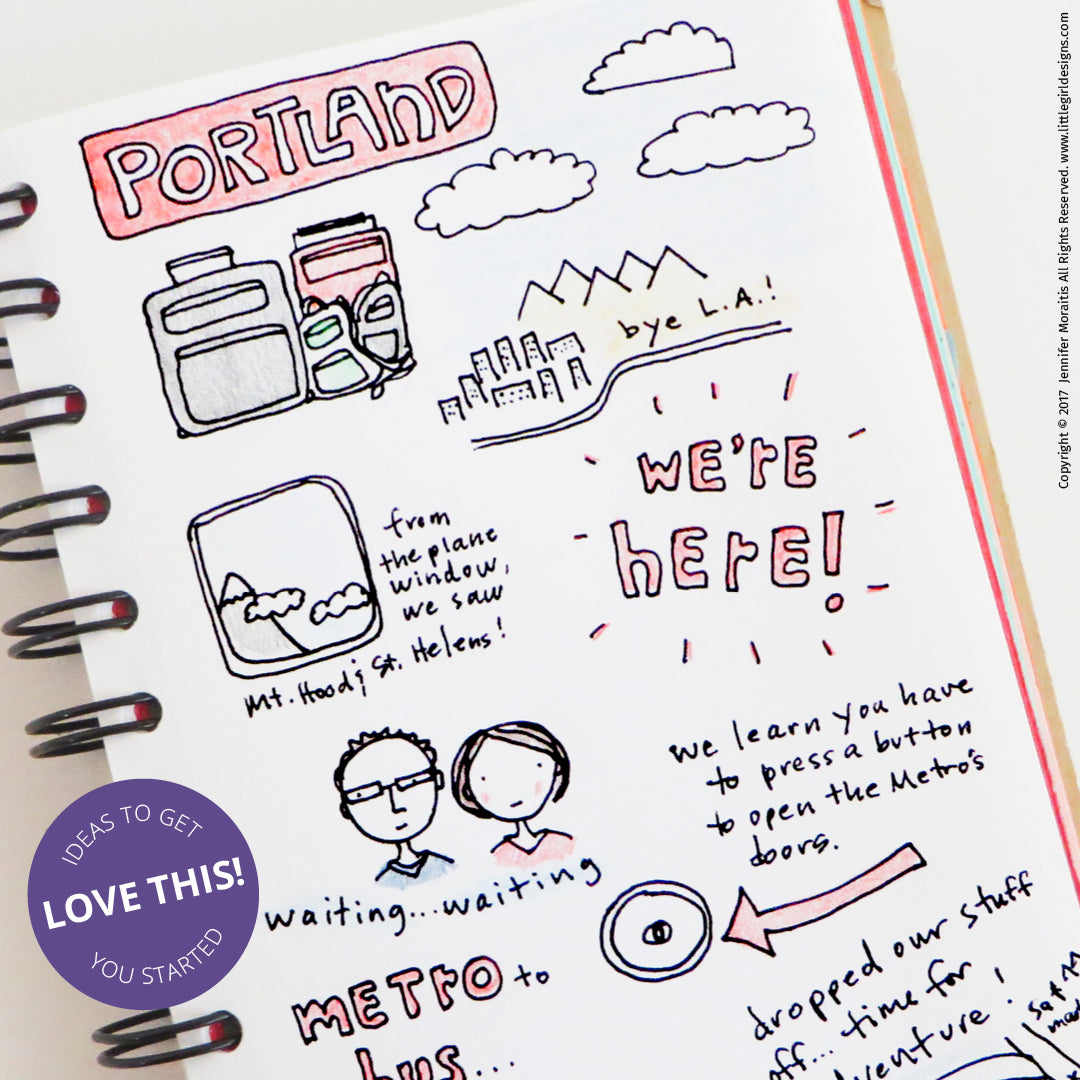 PORTLAND
bye L.A.!
WE'RE
HERE!
from
the plane
window,
we saw
Mt. Hood & St. Helens!
we learn you have
to press a button
to open the Metro's
doors.
waiting...waiting
METRO to
bus...
dropped our stuff
off... time for
venture!
IDEAS TO GET
LOVE THIS!
YOU STARTED
Copyright © 2017 Jennifer Moraitis All Rights Reserved. www.littlegirldesigns.com